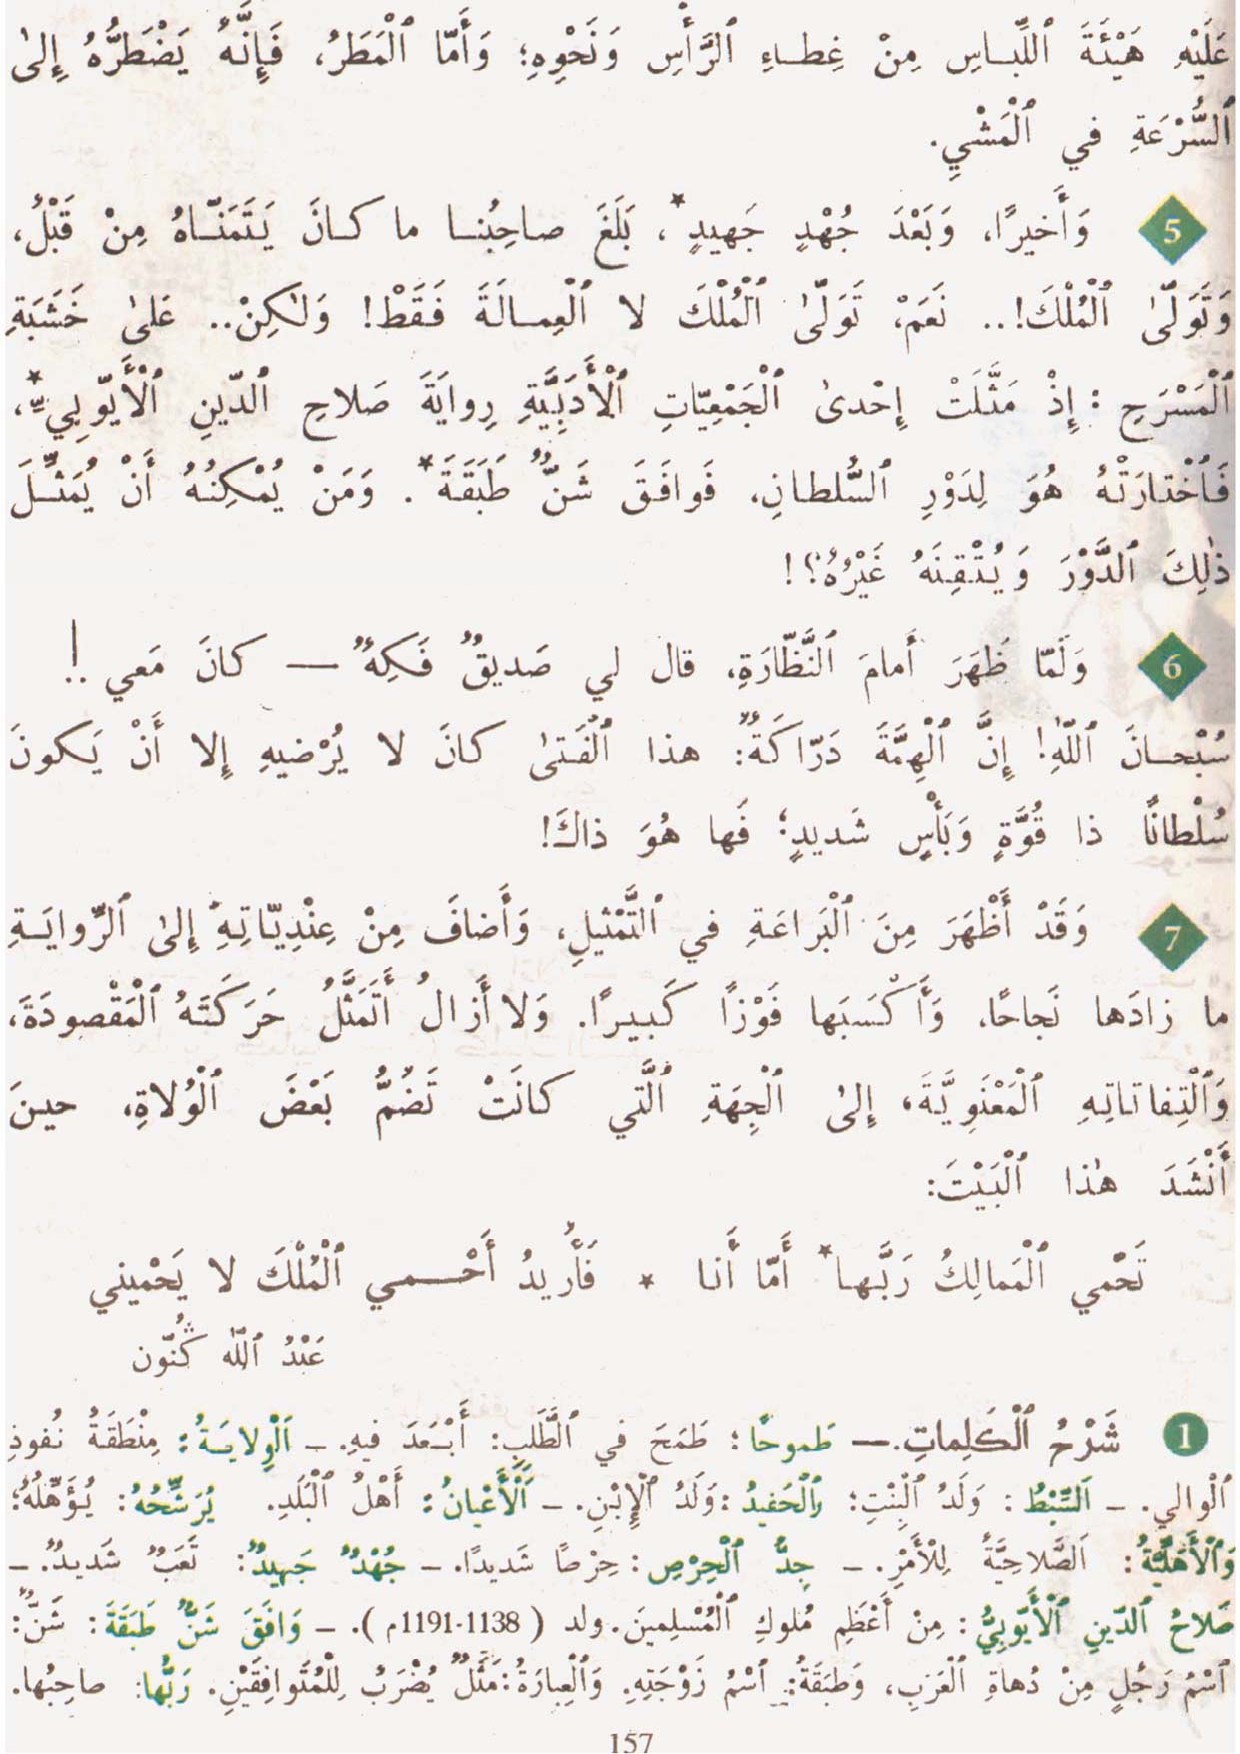 عَلَيْهِ هَيْئَةَ ٱللِّبَاسِ مِنْ غِطاءِ ٱلرَّأْسِ وَنَحْوِهِ؛ وَأَمّا ٱلْمَطَرُ، فَإِنَّهُ يَضْطَرُّهُ إِلىٰ
ٱلسُّرْعَةِ في ٱلْمَشْيِ.
5 وَأَخيرًا، وَبَعْدَ جُهْدٍ جَهيدٍ*، بَلَغَ صاحِبُنا ما كانَ يَتَمَنّاهُ مِنْ قَبْلُ،
وَتَوَلّىٰ ٱلْمُلْكَ!.. نَعَمْ، تَوَلّىٰ ٱلْمُلْكَ لا ٱلْعِمالَةَ فَقَطْ! وَلٰكِنْ.. عَلىٰ خَشَبَةِ
ٱلْمَسْرَحِ : إِذْ مَثَّلَتْ إِحْدىٰ ٱلْجَمْعِيّاتِ ٱلْأَدَبِيَّةِ رِوايَةَ صَلاحِ ٱلدّينِ ٱلْأَيّوبِيِّ*،
فَٱخْتارَتْهُ هُوَ لِدَوْرِ ٱلسُّلطانِ، فَوافَقَ شَنٌّ طَبَقَةَ*. وَمَنْ يُمْكِنُهُ أَنْ يُمَثِّلَ
ذٰلِكَ ٱلدَّوْرَ وَيُتْقِنَهُ غَيْرُهُ؟!
6 وَلَمّا ظَهَرَ أَمامَ ٱلنَّظّارَةِ، قال لي صَديقٌ فَكِهٌ — كانَ مَعي !..
سُبْحانَ ٱللّٰهِ! إِنَّ ٱلْهِمَّةَ دَرّاكَةٌ: هذا ٱلْفَتىٰ كانَ لا يُرْضيهِ إِلا أَنْ يَكونَ
سُلْطانًا ذا قُوَّةٍ وَبَأْسٍ شَديدٍ؛ فَها هُوَ ذاكَ!
7 وَقَدْ أَظْهَرَ مِنَ ٱلْبَراعَةِ في ٱلتَّمْثيلِ، وَأَضافَ مِنْ عِنْدِيّاتِهِ إِلىٰ ٱلرِّوايَةِ
ما زادَها نَجاحًا، وَأَكْسَبَها فَوْزًا كَبيرًا. وَلا أَزالُ أَتَمَثَّلُ حَرَكَتَهُ ٱلْمَقْصودَةَ،
وَٱلْتِفاتاتِهِ ٱلْمَعْنَوِيَّةَ، إِلىٰ ٱلْجِهَةِ ٱلَّتي كانَتْ تَضُمُّ بَعْضَ ٱلْوُلاةِ، حينَ
أَنْشَدَ هٰذا ٱلْبَيْتَ:
تَحْمي ٱلْمَمالِكُ رَبَّها* أَمّا أَنا * فَأُريدُ أَحْمي ٱلْمُلْكَ لا يَحْميني
عَبْدُ ٱللّٰه كَنُّون
1 شَرْحُ ٱلْكَلِماتِ.— طَموحًا : طَمَحَ في ٱلطَّلَبِ: أَبْعَدَ فيهِ. – اَلْوِلايَةُ : مِنْطَقَةُ نُفوذِ
ٱلْوالي. – اَلسِّبْطُ : وَلَدُ ٱلْبِنْتِ؛ وَٱلْحَفيدُ : وَلَدُ ٱلْإِبْنِ. – اَلْأَعْيانُ : أَهْلُ ٱلْبَلَدِ. يُرَشِّحُهُ : يُؤَهِّلُهُ؛
وَٱلْأَهْلِيَّةُ : اَلصَّلاحِيَّةُ لِلْأَمْرِ. – جِدَّ ٱلْحِرْصِ : حِرْصًا شَديدًا. – جُهْدٌ جَهيدٌ : تَعَبٌ شَديدٌ. –
صَلاحُ ٱلدّينِ ٱلْأَيّوبِيُّ : مِنْ أَعْظَمِ مُلوكِ ٱلْمُسْلِمينَ. ولد ( 1138-1191م ). – وَافَقَ شَنٌّ طَبَقَةَ : شَنٌّ:
ٱسْمُ رَجُلٍ مِنْ دُهاةِ ٱلْعَرَبِ، وَطَبَقَةُ: ٱسْمُ زَوْجَتِهِ. وَٱلْعِبارَةُ: مَثَلٌ يُضْرَبُ لِلْمُتَوافِقَيْنِ. رَبُّها: صاحِبُها.
157